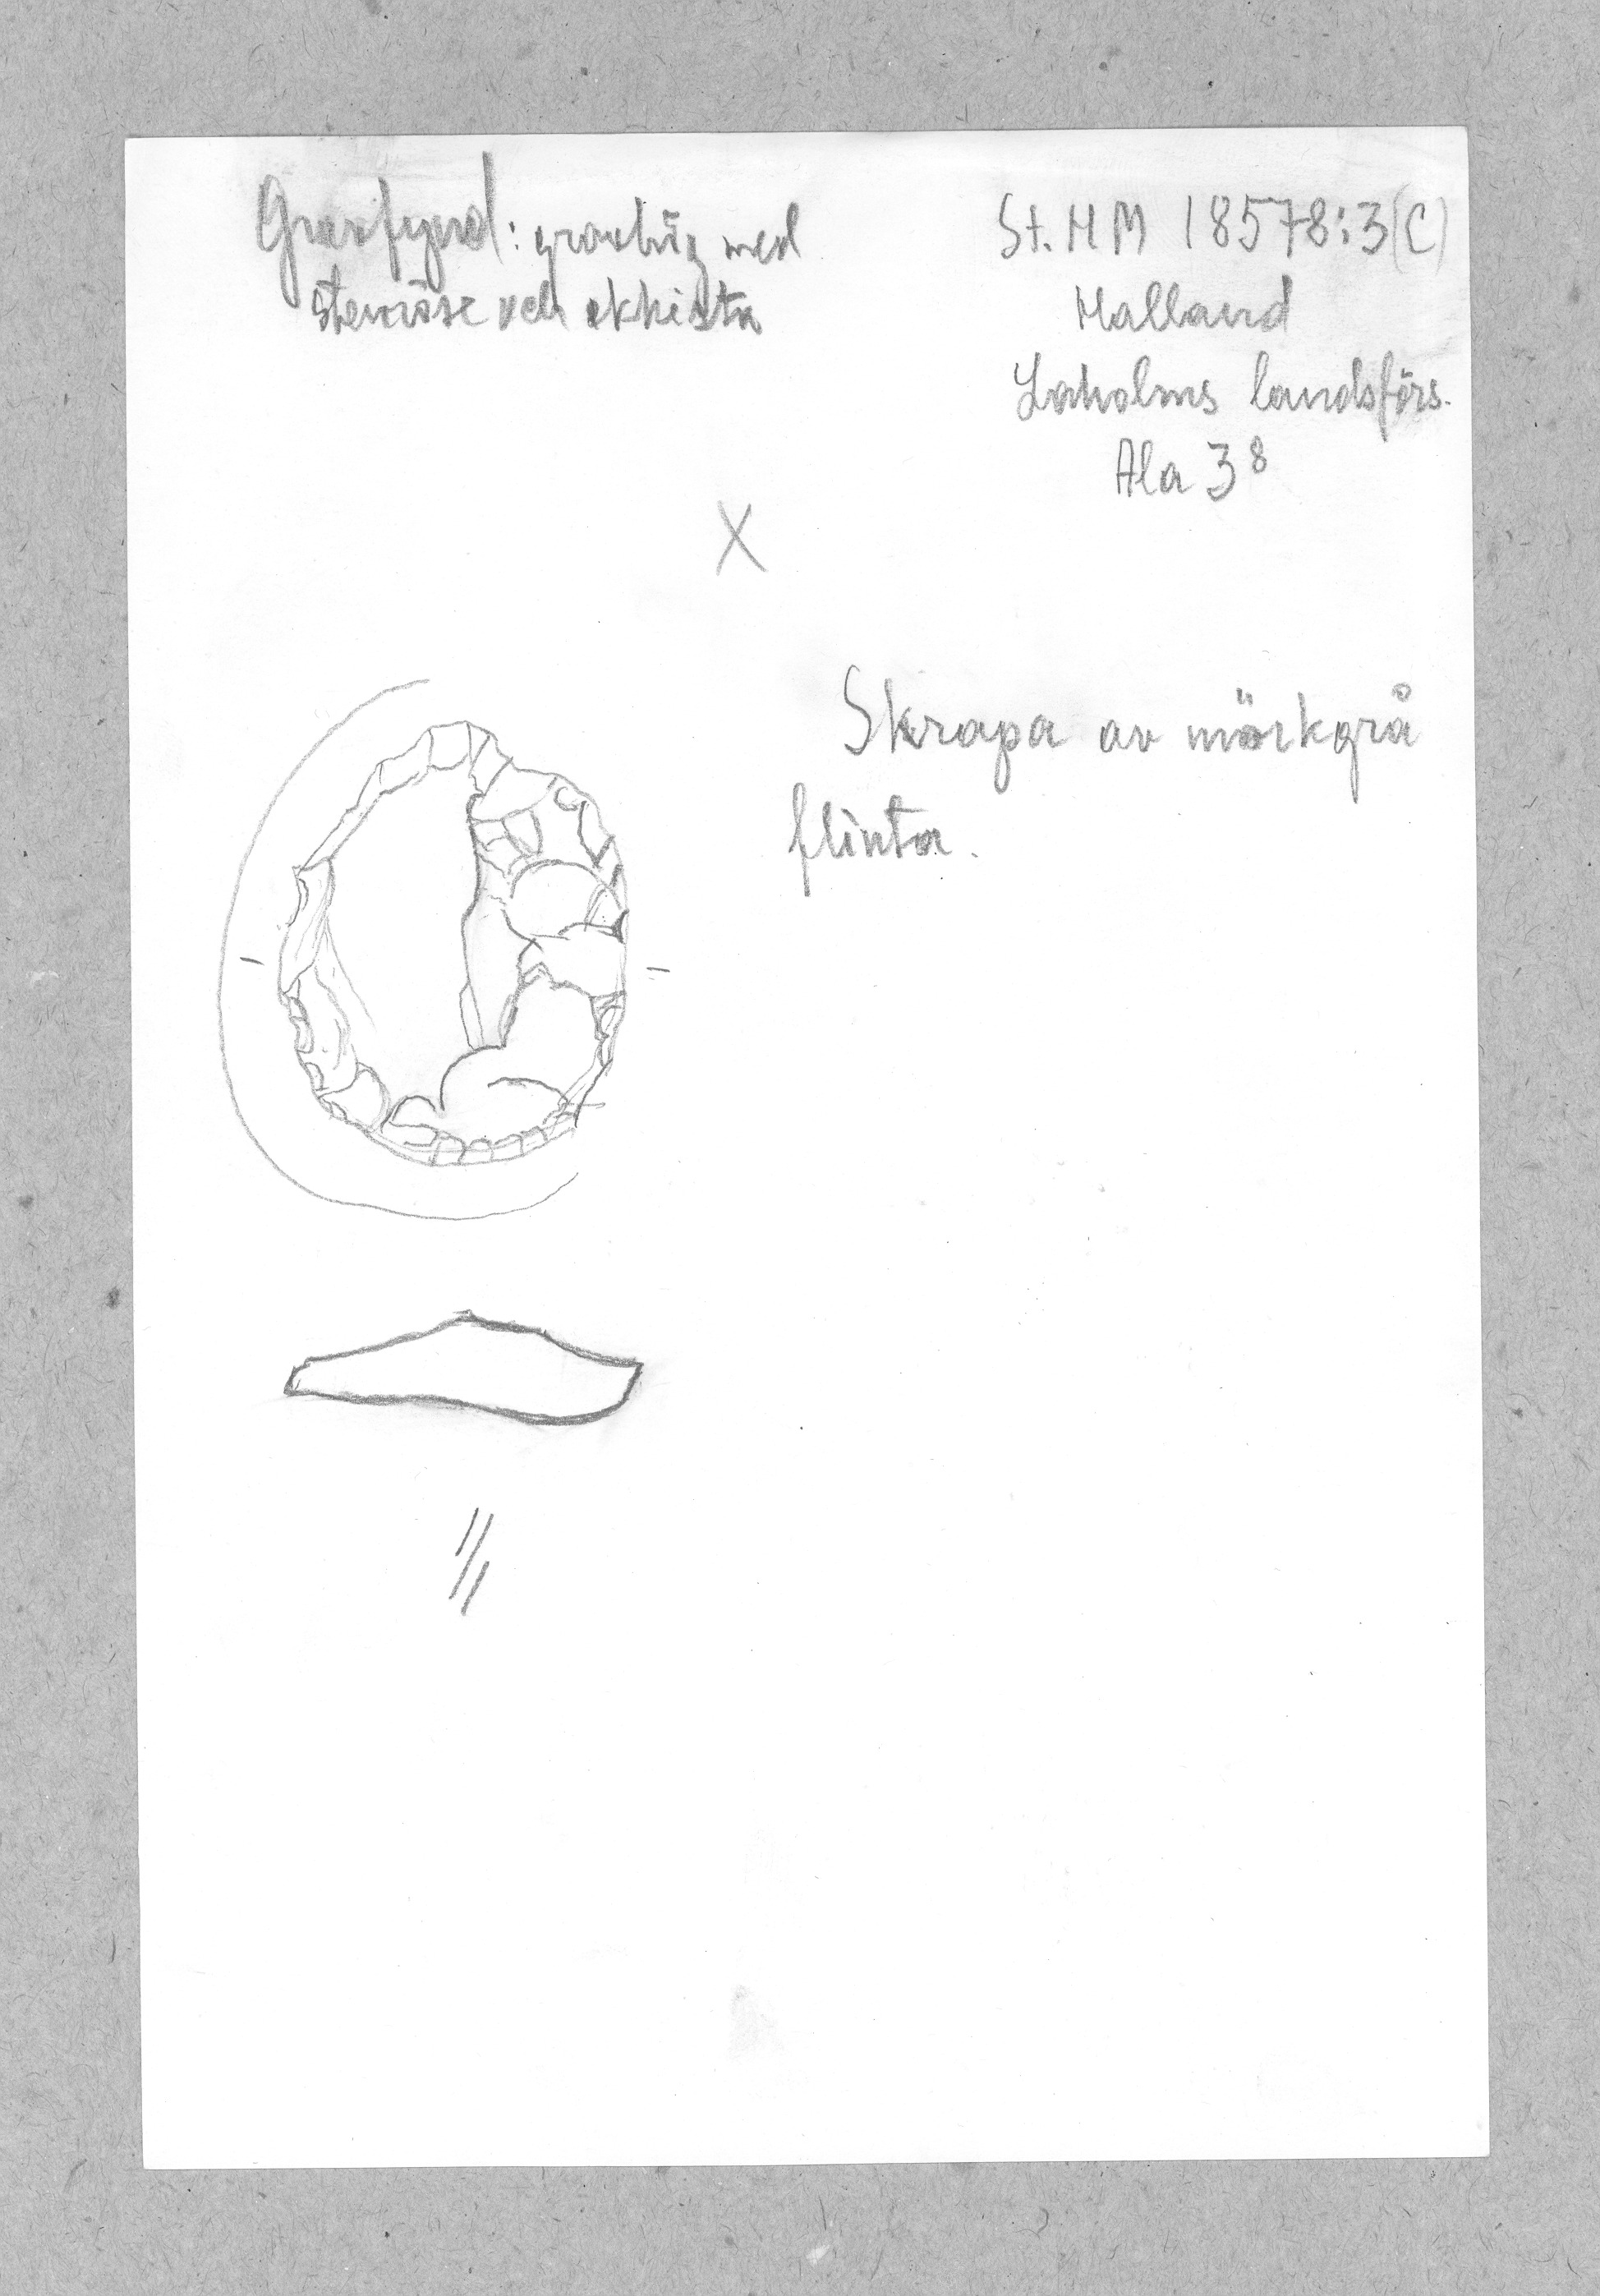 Gravfynd: gravhög med
stenröse och ekkista
St. HM 18578:3(C)
Halland
Laholms landsförs.
Ala 3⁸
X
Skrapa av mörkgrå
flinta.
1/1